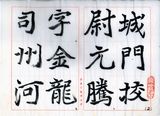 城門校
尉元騰
字金龍
司州河